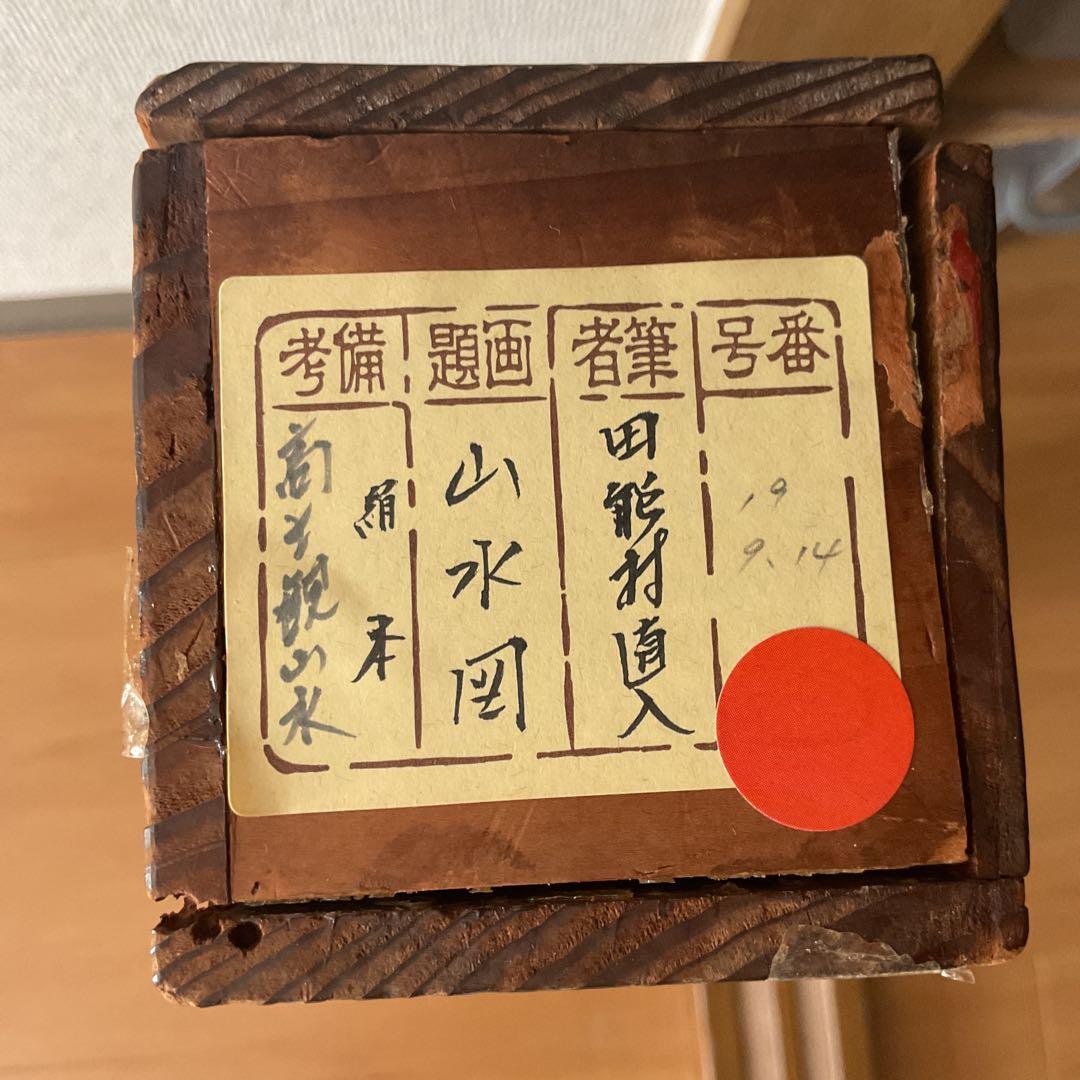 番号
19
9.14
筆者
田能村直入
画題
山水図
備考
絹本
山水